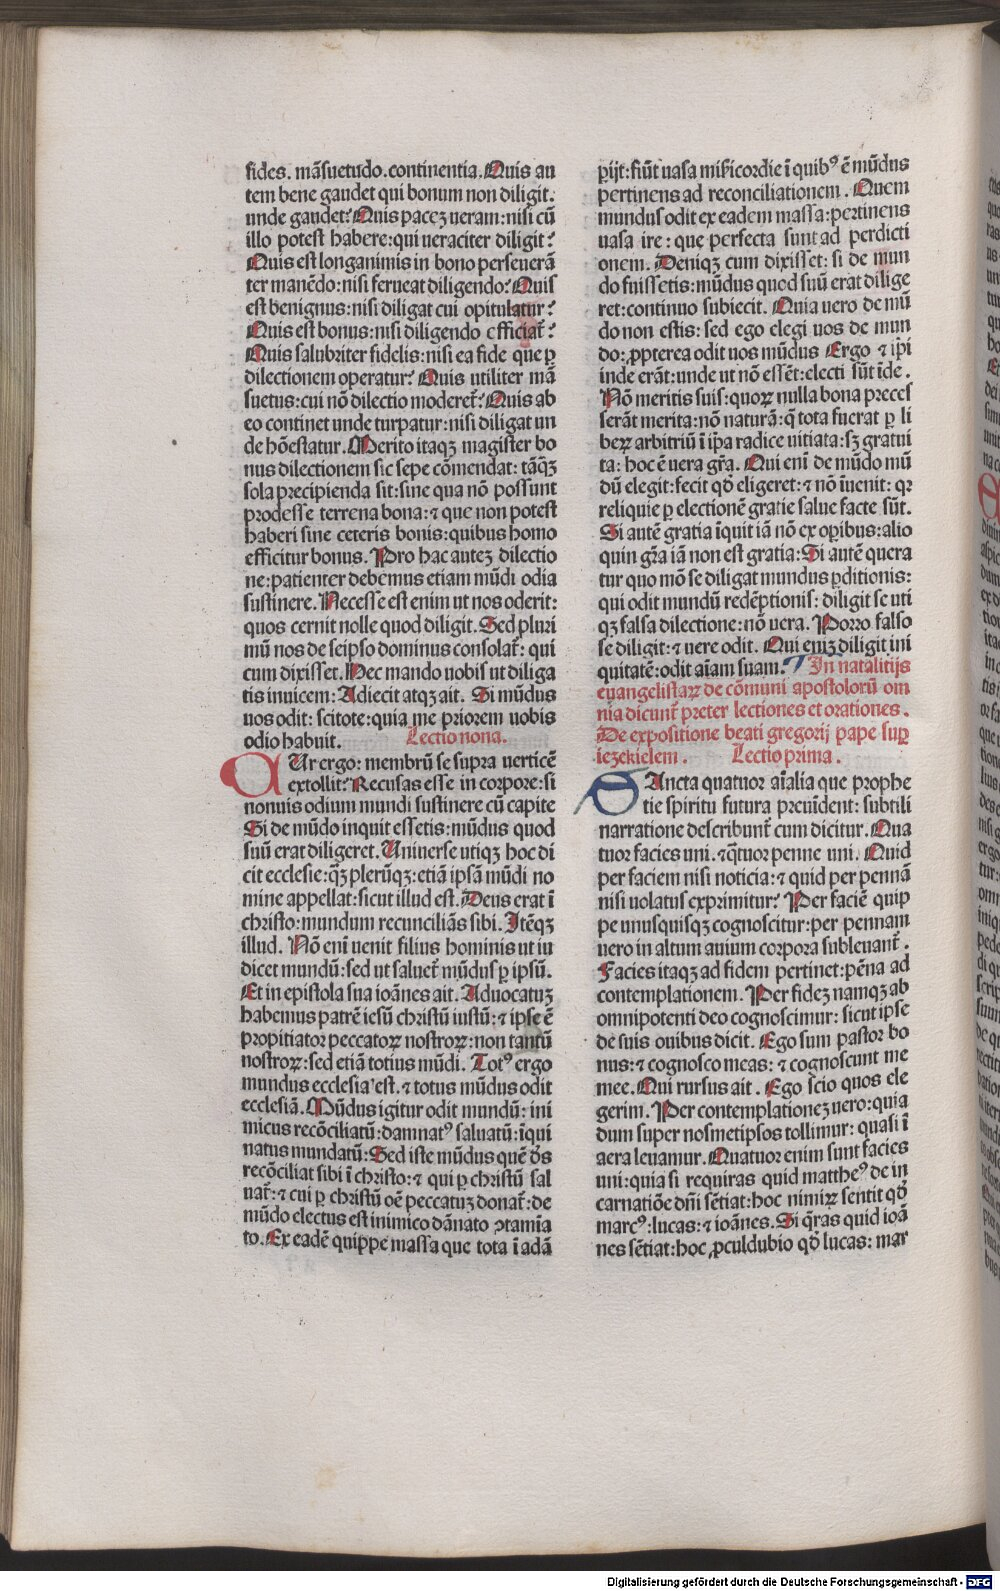 fides. māsuetudo. continentia. Quis au
tem bene gaudet qui bonum non diligit.
unde gaudet? Quis pacez ueram: nisi cū
illo potest habere: qui ueraciter diligit?
Quis est longanimis in bono perseuerā
ter manēdo: nisi ferueat diligendo? Quis
est benignus: nisi diligat cui opitulatur?
Quis est bonus: nisi diligendo efficiat̄?
Quis salubriter fidelis: nisi ea fide que ꝑ
dilectionem operatur? Quis utiliter mā
suetus: cui nō dilectio moderet̄? Quis ab
eo continet unde turpatur: nisi diligat un
de hōestatur. Merito itaqꝫ magister bo
nus dilectionem sic sepe cōmendat: tāqꝫ
sola precipienda sit: sine qua nō possunt
prodesse terrena bona: ⁊ que non potest
haberi sine ceteris bonis: quibus homo
efficitur bonus. Pro hac autez dilectio
ne: patienter debemus etiam mūdi odia
sustinere. Necesse est enim ut nos oderit:
quos cernit nolle quod diligit. Sed pluri
mū nos de seipso dominus consolat̄: qui
cum dixisset. Hec mando uobis ut diliga
tis inuicem: Adiecit atqꝫ ait. Si mūdus
uos odit: scitote: quia me priorem uobis
odio habuit. Lectio nona.
CUr ergo: membrū se supra uerticē
extollit? Recusas esse in corpore: si
nonuis odium mundi sustinere cū capite
Si de mūdo inquit essetis: mūdus quod
suū erat diligeret. Uniuerse utiqꝫ hoc di
cit ecclesie: qꝫ plerūqꝫ: etiā ipsā mūdi no
mine appellat: sicut illud est. Deus erat ī
christo: mundum recunciliās sibi. Itēqꝫ
illud. Nō enī uenit filius hominis ut iu
dicet mundū: sed ut saluet̄ mūdus ꝑ ipsū.
Et in epistola sua ioānes ait. Aduocatuꝫ
habemus patrē iesū christū iustū: ⁊ ipse ē
propitiator peccatoꝝ nostroꝝ: non tantū
nostroꝝ: sed etiā totius mūdi. Totꝰ ergo
mundus ecclesia est. ⁊ totus mūdus odit
ecclesiā. Mūdus igitur odit mundū: ini
micus recōciliatū: damnatꝰ saluatū: īqui
natus mundatū: Sed iste mūdus quē dꝰs
recōciliat sibi ī christo: ⁊ qui ꝑ christū sal
uat̄: ⁊ cui ꝑ christū oē peccatuꝫ donat̄: de
mūdo electus est inimico dānato ꝯtamīa
to. Ex eadē quippe massa que tota ī adā
ꝑijt: fiūt uasa mīsericordie ī quibꝰ ē mūdus
pertinens ad reconciliationem. Quem
mundus odit ex eadem massa: pertinens
uasa ire: que perfecta sunt ad perdicti
onem. Deniqꝫ cum dixisset: si de mun
do fuissetis: mūdus quod suū erat dilige
ret: continuo subiecit. Quia uero de mū
do non estis: sed ego elegi uos de mun
do: ꝓpterea odit uos mūdus Ergo ⁊ ip̄i
inde erāt: unde ut nō essēt: electi sūt īde.
Nō meritis suis: quoꝝ nulla bona preces
serāt merita: nō naturā: q̄ tota fuerat ꝑ li
beꝝ arbitriū ī ip̄a radice uitiata: sꝫ gratui
ta: hoc ē uera gr̄a. Qui enī de mūdo mū
dū elegit: fecit qd̄ eligeret: ⁊ nō īuenit: qꝛ
reliquie ꝑ electionē gratie salue facte sūt.
Si autē gratia īquit iā nō ex oꝑibus: alio
quin gr̄a iā non est gratia: Si autē quera
tur quo mō se diligat mundus ꝑditionis:
qui odit mundū redēptionis: diligit se uti
qꝫ falsa dilectione: nō uera. Porro falso
se diligit: ⁊ uere odit. Qui eniꝫ diligit ini
quitatē: odit aīam suam. In natalitijs
euangelistaꝝ de cōmuni apostolorū om
nia dicunt̄ preter lectiones et orationes.
De expositione beati gregorij pape suꝑ
iezekielem. Lectio prima.
SAncta quatuor aīalia que prophe
tie spiritu futura preuīdent: subtili
narratione describunt̄ cum dicitur. Qua
tuor facies uni. ⁊ q̄tuor penne uni. Quid
per faciem nisi noticia: ⁊ quid per pennā
nisi uolatus exprimitur? Per faciē quip
pe unusquisqꝫ cognoscitur: per pennam
uero in altum auium corpora subleuant̄.
Facies itaqꝫ ad fidem pertinet: pēna ad
contemplationem. Per fidez namqꝫ ab
omnipotenti deo cognoscimur: sicut ipse
de suis ouibus dicit. Ego sum pastor bo
nus: ⁊ cognosco meas: ⁊ cognoscunt me
mee. Qui rursus ait. Ego scio quos ele
gerim. Per contemplationez uero: quia
dum super nosmetipsos tollimur: quasi ī
aera leuamur. Quatuor enim sunt facies
uni: quia si requiras quid mattheꝰ de in
carnatiōe dn̄i sētiat: hoc nimiꝝ sentit qd̄
marcꝰ: lucas: ⁊ ioānes. Si q̄ras quid ioā
nes sētiat: hoc ꝓculdubio qd̄ lucas: mar
Digitalisierung gefördert durch die Deutsche Forschungsgemeinschaft - DFG